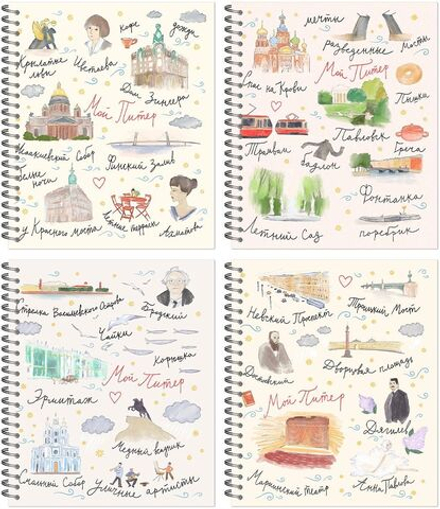 Крылатые
львы
Цветаева
кофе
дожди
Дом Зингера
Мой Питер
Исаакиевский Собор
Финский Залив
белые
ночи
у Красного моста
летние террасы
Ахматова
мечты
разведенные
мосты
Мой Питер
Спас на Крови
Пышки
Павловск
Трамваи
Греча
Фонтанка
Летний Сад
поребрик
Стрелка Васильевского Острова
Бродский
Чайки
Корюшка
Мой Питер
Эрмитаж
Медный всадник
Смольный Собор
Уличные артисты
Невский Проспект
Троицкий Мост
Достоевский
Дворцовая площадь
Мой Питер
Дягилев
Мариинский театр
Анна Павлова